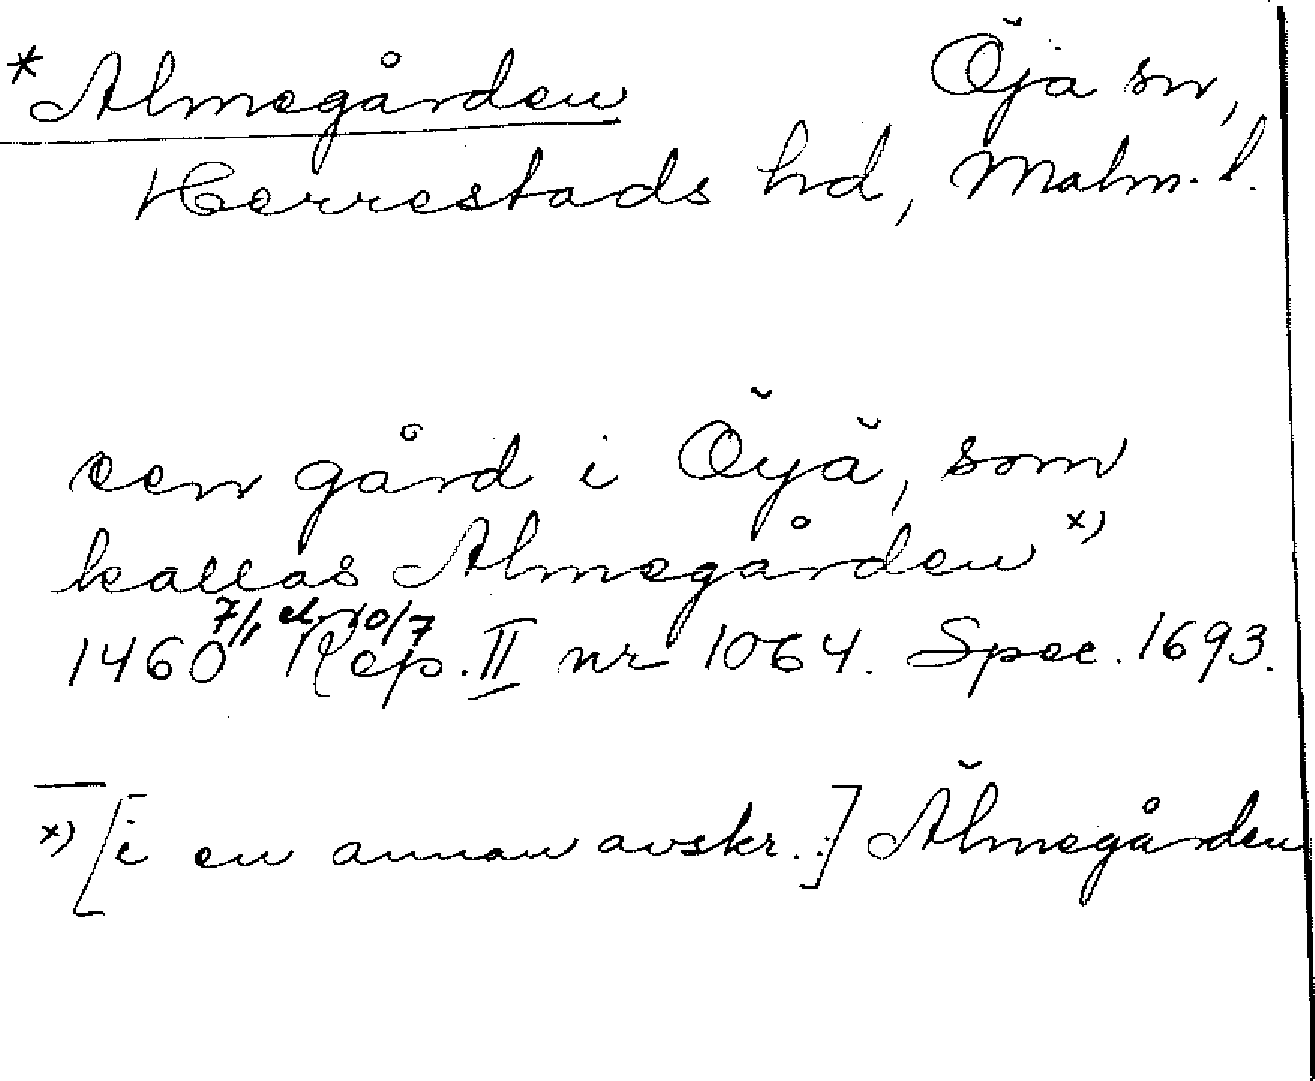 *Almegården Öja sn,
Herrestads hd, Malm. l.
een gård i Öyä, som
kallas Almegården x)
1460 7/1 el. 10/7 Rep. II nr 1064. Spec. 1693.
x) [i en annan avskr.:] Älmegården